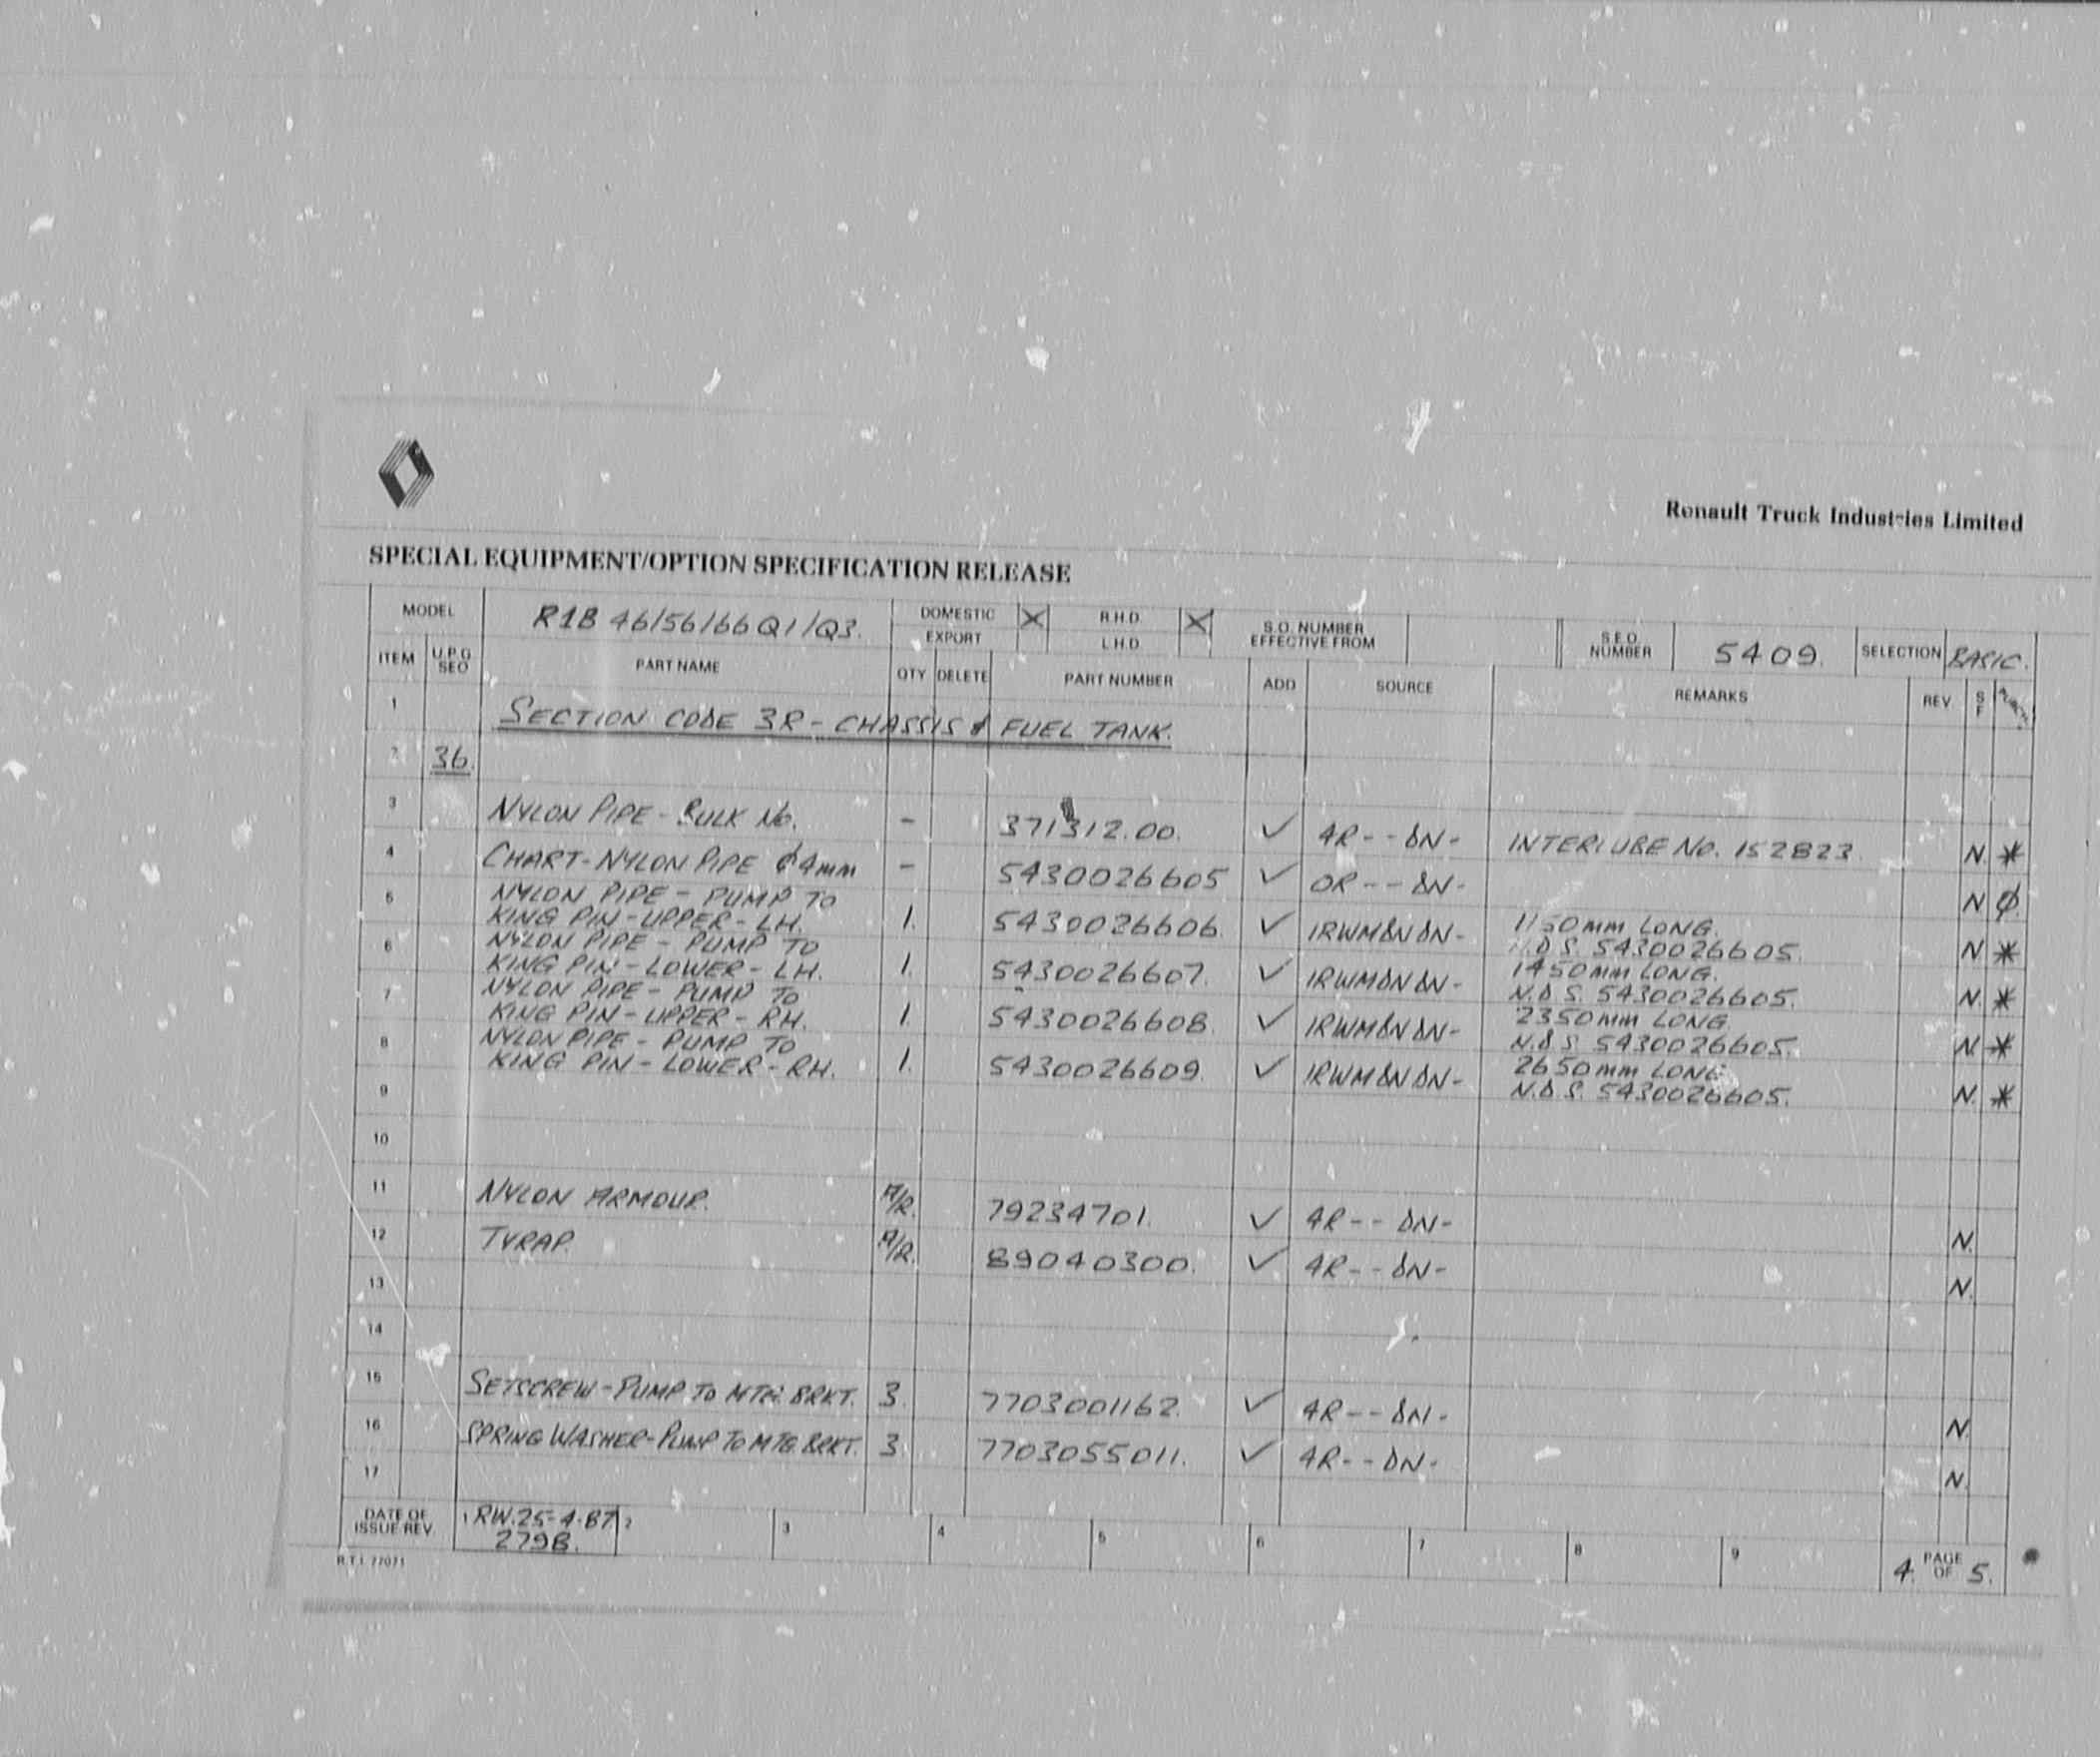 Renault Truck Industries Limited
SPECIAL EQUIPMENT/OPTION SPECIFICATION RELEASE
MODEL R1B 46/56/66 Q1/Q3. DOMESTIC X R.H.D. X S.O. NUMBER S.E.O. 5409. SELECTION BASIC.
EXPORT L.H.D. EFFECTIVE FROM NUMBER
ITEM U.P.G SEO PART NAME QTY DELETE PART NUMBER ADD SOURCE REMARKS REV S F
1 SECTION CODE 3R - CHASSIS & FUEL TANK.
2 36.
3 NYLON PIPE - BULK No. - 371312.00. ✓ 4R - - DN - INTERLUBE No. 152823. N. *
4 CHART - NYLON PIPE ϕ4mm - 5430026605 ✓ OR - - DN - N ϕ.
5 NYLON PIPE - PUMP TO
KING PIN - UPPER - LH. 1. 5430026606. ✓ 1RWMDNDN - 1150mm LONG.
N.D.S. 5430026605. N *
6 NYLON PIPE - PUMP TO
KING PIN - LOWER - LH. 1. 5430026607. ✓ 1RWMDNDN - 1450mm LONG.
N.D.S. 5430026605. N. *
7 NYLON PIPE - PUMP TO
KING PIN - UPPER - RH. 1. 5430026608. ✓ 1RWMDNDN - 2350mm LONG.
N.D.S. 5430026605. N. *
8 NYLON PIPE - PUMP TO
KING PIN - LOWER - RH. 1. 5430026609. ✓ 1RWMDNDN - 2650mm LONG
N.D.S. 5430026605. N. *
9
10
11 NYLON ARMOUR. A/R. 79234701. ✓ 4R - - DN - N.
12 TYRAP. A/R. 89040300. ✓ 4R - - DN - N.
13
14
15 SETSCREW - PUMP TO MTG BRKT. 3. 7703001162. ✓ 4R - - DN - N.
16 SPRING WASHER - PUMP TO MTG. BRKT. 3. 7703055011. ✓ 4R - - DN - N.
17
DATE OF ISSUE/REV. 1 RW. 25-4-87 2 3 4 5 6 7 8 9 4. PAGE OF 5.
2798.
R.T.I. 77071